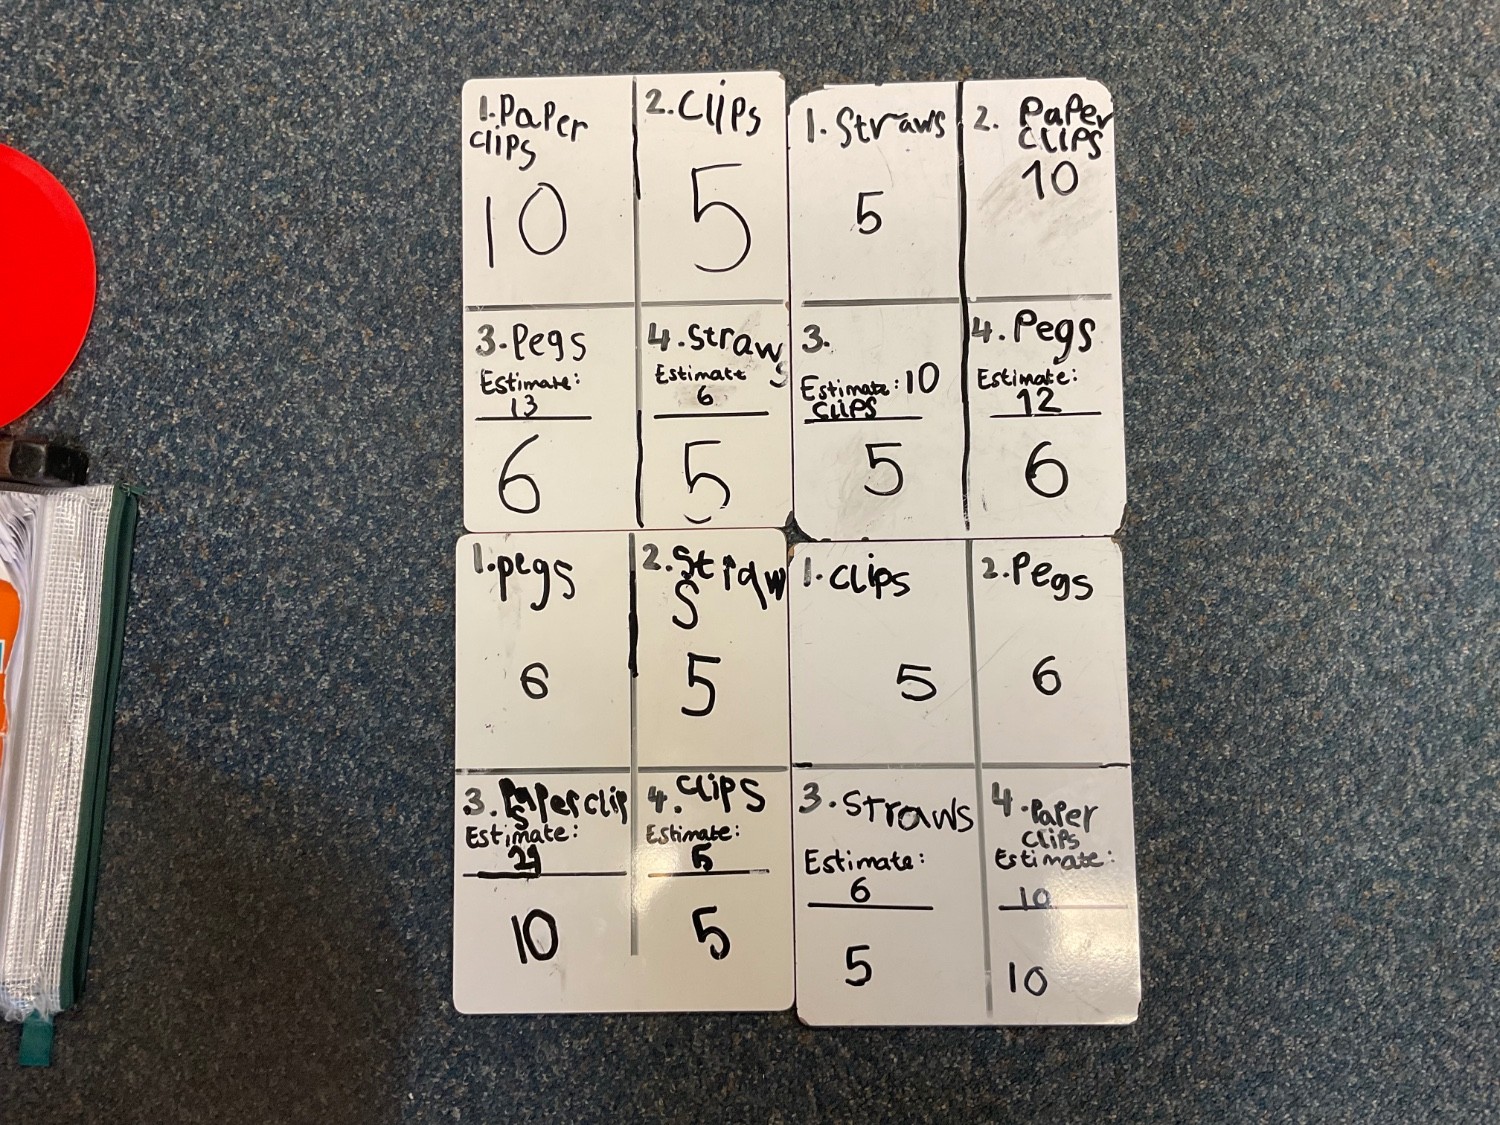 1. Paper
clips
10
2. Clips
5
3. Pegs
Estimate:
13
6
4. Straws
Estimate
6
5
1. Straws
5
2. Paper
Clips
10
3.
Estimate: 10
Clips
5
4. Pegs
Estimate:
12
6
1. pegs
6
2. Straw
s
5
3. Paper clip
s
Estimate:
10
4. Clips
Estimate:
5
5
1. Clips
5
2. Pegs
6
3. Straws
Estimate:
6
5
4. Paper
Clips
Estimate:
10
10